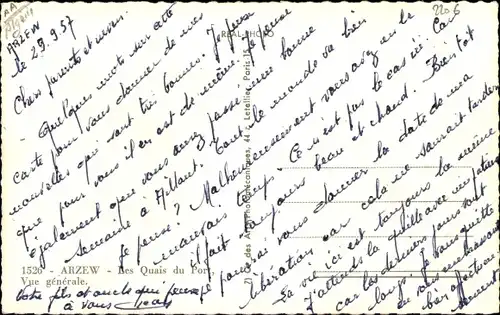 ARZEW
le 29.9.57
Chers parents et
Quelques mots sur cette
carte pour vous donner de mes
nouvelles qui sont très bonnes. J'espère
que pour vous il en est de même. J'espère
également que vous avez passé une bonne
semaine à Tout le monde va bien
je pense? Malheureusement vous avez eu le
mauvais temps. Ce n'est pas le cas ici car
il fait toujours beau et chaud. Bientôt
je pourrai vous donner la date de ma
libération car cela ne saurait tarder
La vie ici est toujours la même
J'attends la quille avec impatience
car les derniers jours sont
longs. Je vous quitte
en vous embrassant
bien affectueusement
Votre fils et oncle qui pense
à vous
REAL-PHOTO
1526 - ARZEW - Les Quais du Port,
Vue générale.
2206